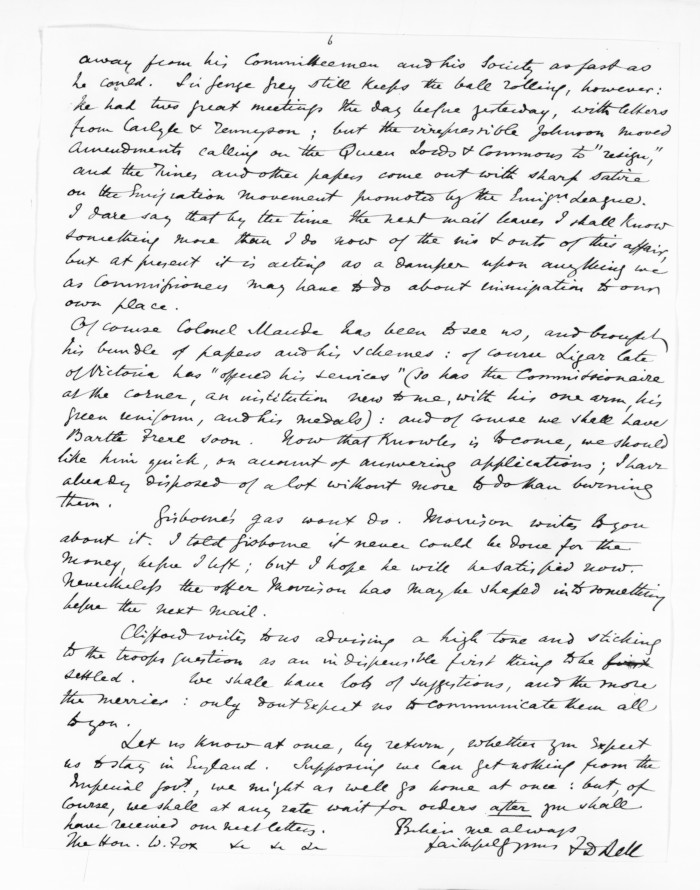 6
away from his Committeemen and his Society as fast as
he could. Sir George Grey still keeps the ball rolling, however:
he had two great meetings the day before yesterday, with letters
from Carlyle & Tennyson; but the irrepressible Johnson moved
amendments calling on the Queen Lords & Commons to "resign,"
and the Times and other papers come out with sharp satire
on the Emigration movement promoted by the Emign League.
I dare say that by the time the next mail leaves I shall know
something more than I do now of the ins & outs of this affair,
but at present it is acting as a damper upon anything we
as Commissioners may have to do about immigration to our
own place.
Of course Colonel Maude has been to see us, and brought
his bundle of papers and his schemes: of course Ligar late
of Victoria has "offered his services" (so has the Commissionaire
at the corner, an institution new to me, with his one arm, his
green uniform, and his medals): and of course we shall have
Bartle Frere soon. Now that Knowles is to come, we should
like him quick, on account of answering applications; I have
already disposed of a lot without more to do than burning
them.
Gisborne's gas wont do. Morrison writes to you
about it. I told Gisborne it never could be done for the
money, before I left; but I hope he will be satisfied now.
Nevertheless the offer Morrison has may be shaped into something
before the next mail.
Clifford writes to us advising a high tone and sticking
to the troops question as an indispensible first thing to be first
settled. We shall have lots of suggestions, and the more
the merrier: only dont expect us to communicate them all
to you.
Let us know at once, by return, whether you expect
us to stay in England. Supposing we can get nothing from the
Imperial Govt., we might as well go home at once: but, of
course, we shall at any rate wait for orders after you shall
have received our next letters. Believe me always
The Hon. W. Fox &c &c &c faithfully yours F D Bell